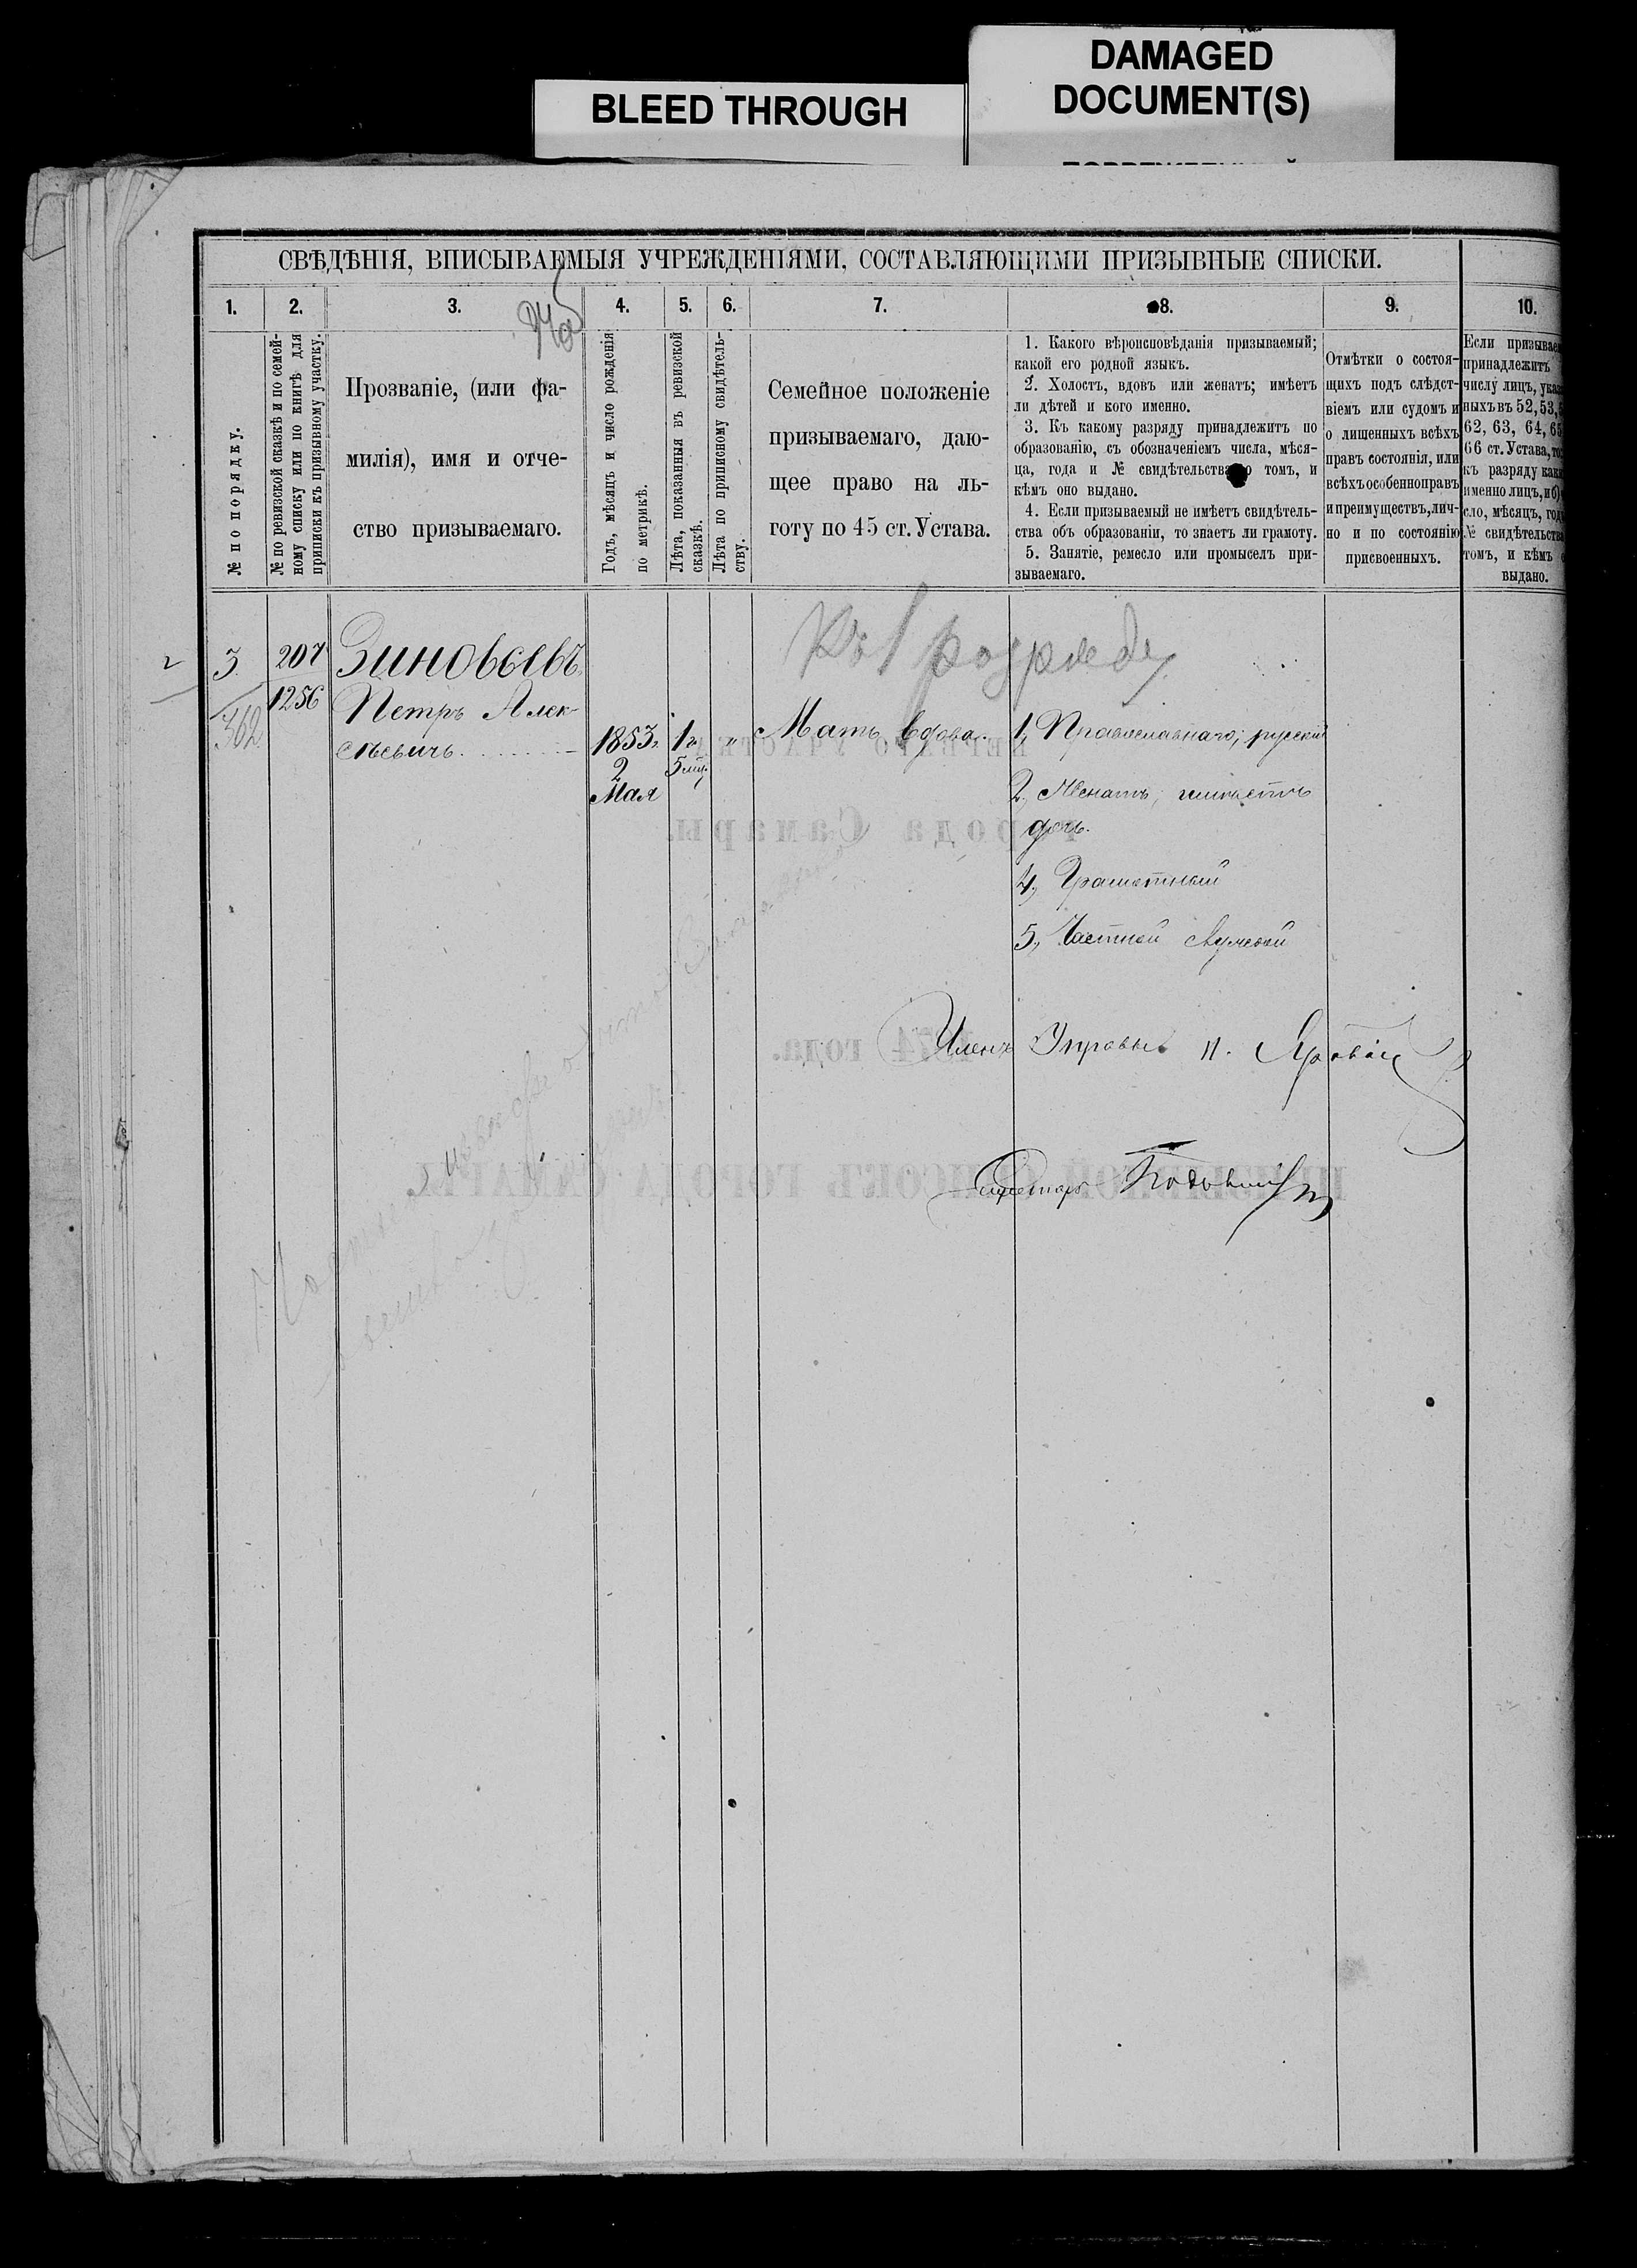 DAMAGED
DOCUMENT(S)
BLEED THROUGH
СВѢДѢНІЯ, ВПИСЫВАЕМЫЯ УЧРЕЖДЕНІЯМИ, СОСТАВЛЯЮЩИМИ ПРИЗЫВНЫЕ СПИСКИ.
1.
2.
3.
4.
5.
6.
7.
8.
9.
10.
№ по порядку.
№ по ревизской сказкѣ и по семей-
ному списку или по книгѣ для
приписки къ призывному участку.
Прозваніе, (или фа-
милія), имя и отче-
ство призываемаго.
Годъ, мѣсяцъ и число рожденія
по метрикѣ.
Лѣта, показанныя въ ревизской
сказкѣ.
Лѣта по приписному свидѣтель-
ству.
Семейное положеніе
призываемаго, даю-
щее право на ль-
готу по 45 ст. Устава.
1. Какого вѣроисповѣданія призываемый;
какой его родной языкъ.
2. Холостъ, вдовъ или женатъ; имѣетъ
ли дѣтей и кого именно.
3. Къ какому разряду принадлежитъ по
образованію, съ обозначеніемъ числа, мѣся-
ца, года и № свидѣтельства о томъ, и
кѣмъ оно выдано.
4. Если призываемый не имѣетъ свидѣтель-
ства объ образованіи, то знаетъ ли грамоту.
5. Занятіе, ремесло или промыселъ при-
зываемаго.
Отмѣтки о состоя-
щихъ подъ слѣдст-
віемъ или судомъ и
о лишенныхъ всѣхъ
правъ состоянія, или
всѣхъ особенно правъ
и преимуществъ, лич-
но и по состоянію
присвоенныхъ.
Если призывае
принадлежитъ
числу лицъ, указ
ныхъ въ 52, 53,
62, 63, 64, 65
66 ст. Устава, то
къ разряду как
именно лицъ, и б)
сло, мѣсяцъ, год
№ свидѣтельства
томъ, и кѣмъ о
выдано.
Къ 1 розряду
2 3 207 Зиновьевъ
1256 Петръ Алек-
362
сѣевичъ 1853 1 г. " Мать вдова. 1, Православнаго; русскій
2 5 мц.
Мая 2. Женатъ; имѣетъ
дочь.
4, Грамотный
5, Частной службой
Членъ Управы П.
Секретарь